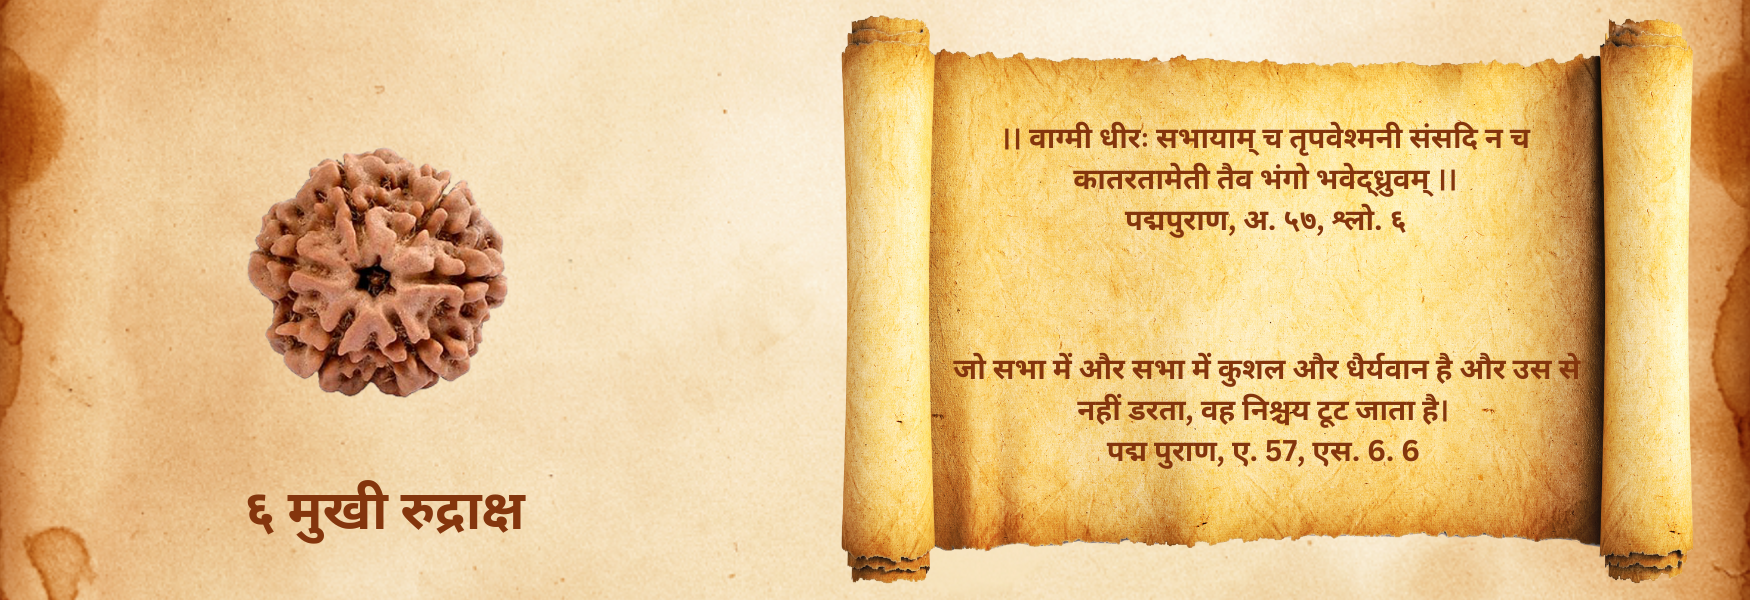 ।। वाग्मी धीरः सभायाम् च तृपवेश्मनी संसदि न च
कातरतामेती तैव भंगो भवेद्ध्रुवम् ।।
पद्मपुराण, अ. ५७, श्लो. ६
जो सभा में और सभा में कुशल और धैर्यवान है और उस से
नहीं डरता, वह निश्चय टूट जाता है।
पद्म पुराण, ए. 57, एस. 6. 6
६ मुखी रुद्राक्ष